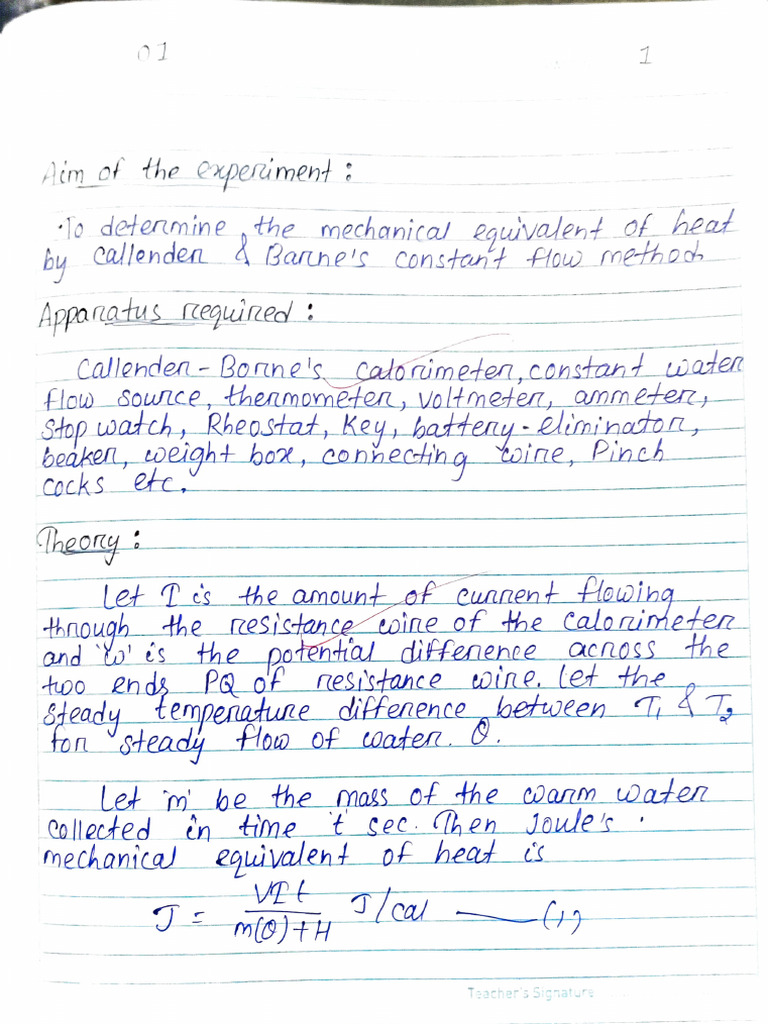 01 1
Aim of the experiment:
To determine the mechanical equivalent of heat
by Callender & Barne's constant flow method
Apparatus required:
Callender - Borne's calorimeter, constant water
flow source, thermometer, voltmeter, ammeter,
stop watch, Rheostat, Key, battery-eliminator,
beaker, weight box, connecting wire, Pinch
cocks etc.
Theory:
Let I is the amount of current flowing
through the resistance wire of the calorimeter
and 'v' is the potential difference across the
two ends PQ of resistance wire. Let the
steady temperature difference between T₁ & T₂
for steady flow of water. θ.
Let 'm' be the mass of the warm water
collected in time 't sec. Then Joule's
mechanical equivalent of heat is
J = VIt / m(θ)+H J/cal —— (1)
Teacher's Signature